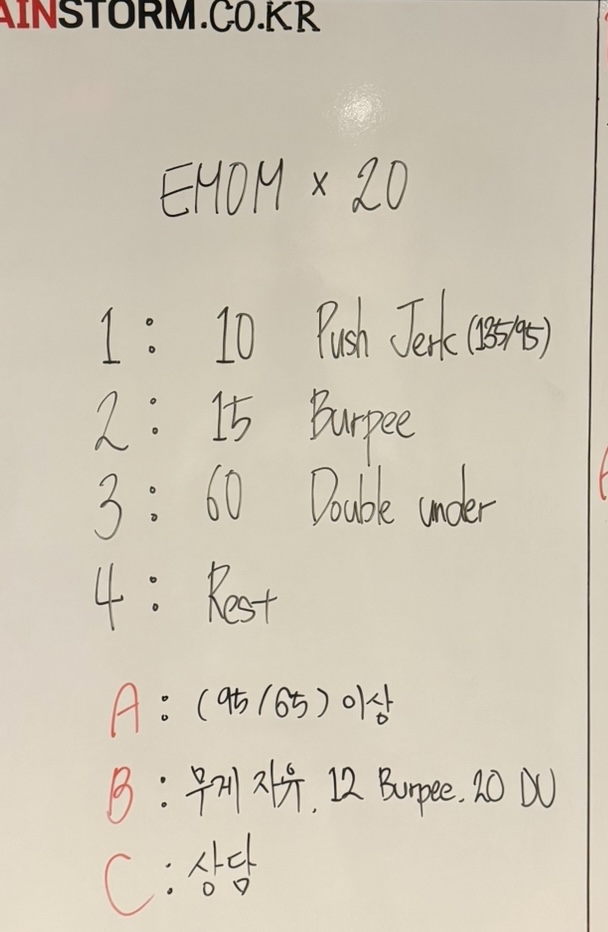 AINSTORM.CO.KR
EMOM × 20
1 : 10 Push Jerk (135/95)
2 : 15 Burpee
3 : 60 Double under
4 : Rest
A : (95/65) 이상
B : 무게 자유. 12 Burpee. 20 DU
C : 상담